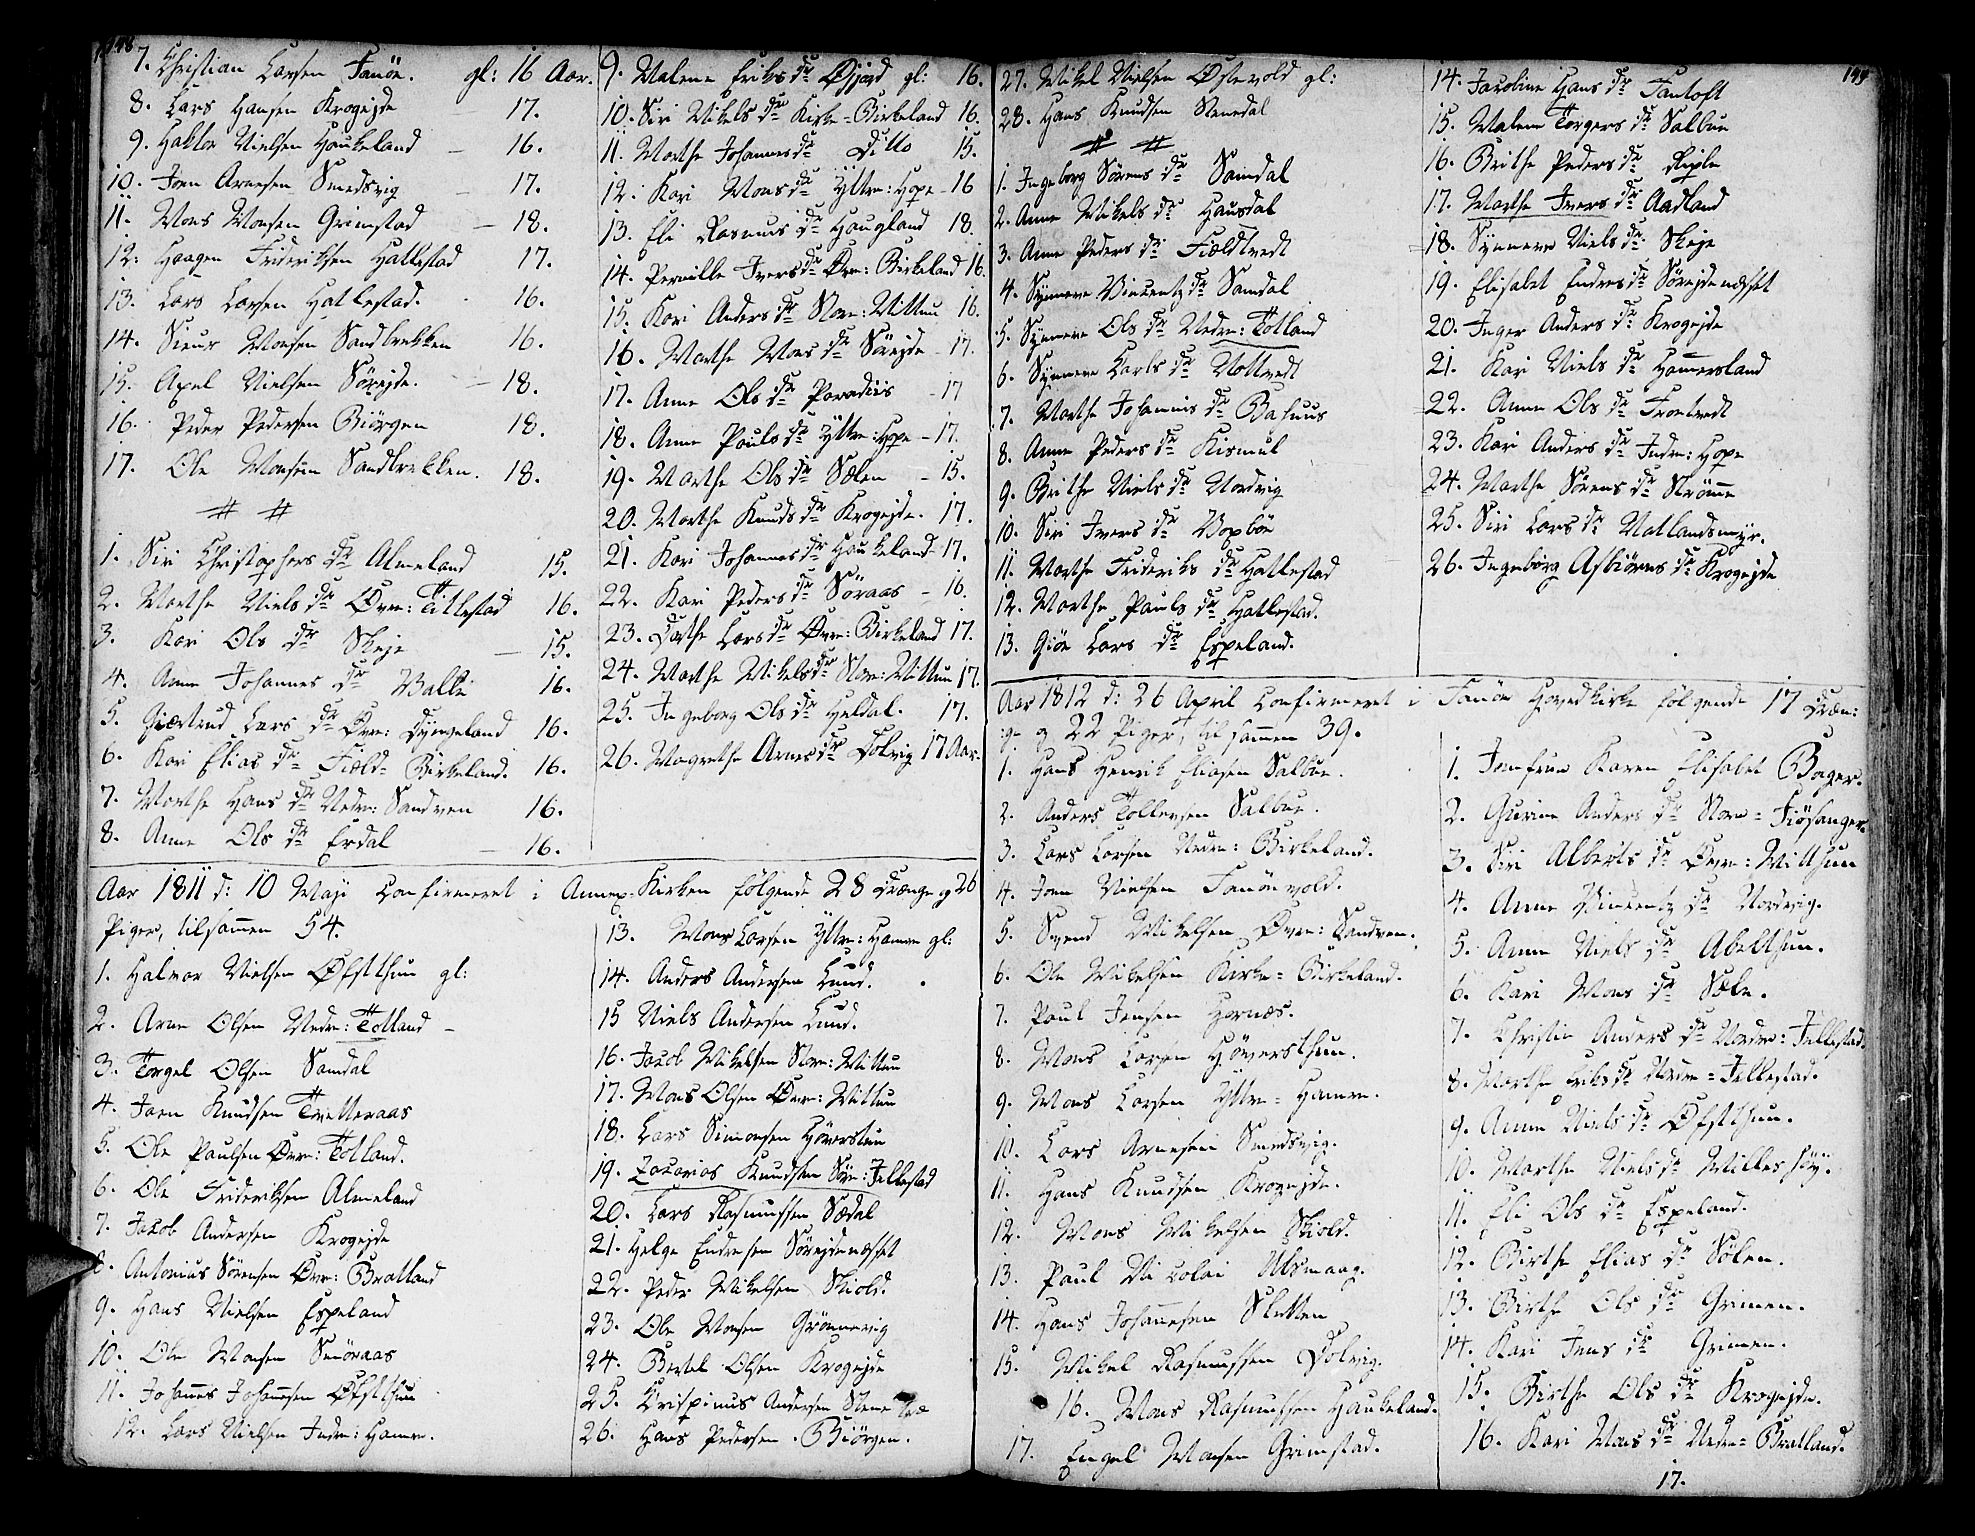 148
7. Christian Larsen Fanöe. gl: 16 Aar.
8. Lars Hansen Krogejde 17.
9. Haktor Nielsen Haukeland – 16.
10. Joen Arnesen Smedsvig – 17.
11. Mons Monsen Grimstad – 18.
12. Haagen Frideriksen Hatlestad 17.
13. Lars Larsen Hatlestad. 16.
14. Sieur Monsen Sandbrekken 16.
15. Axel Nielsen Sörejde. – 18.
16. Peder Pedersen Biörgen 18.
17. Ole Monsen Sandbrekken. 18.
1. Siri Christophers dr Almeland 15.
2. Marthe Niels dr Øvre: Titlestad 16.
3. Kari Ols dr Skeje – 15.
4. Anne Johannes dr Valle 16.
5. Giærtrud Lars dr Øvre: Dyngeland 16.
6. Kari Elias dr Field-Birkeland. 16.
7. Marthe Hans dr Nedre: Sandven 16.
8. Anne Ols dr Erdal – 16.
9. Malene Eriks dr Øsjord gl: 16.
10. Siri Mikels dr Kirke-Birkeland 16.
11. Marthe Johannes dr Ditto 15.
12. Kari Mons dr Yttre: Hope – 16
13. Eli Rasmus dr Haugland 18.
14. Pernille Ivers dr Øvr: Birkeland 16.
15. Kari Anders dr Store: Mittun 16.
16. Marthe Mons dr Sörejde – 17.
17. Anne Ols dr Paradiis – 17
18. Anne Pouls dr Yttre: Hope – 17.
19. Marthe Ols dr Sælen – 15.
20. Marthe Knuds dr Krogejde. 17.
21. Kari Johannes dr Haukeland – 17.
22. Kari Peders dr Söraas – 16.
23. Dorthe Lars dr Øvre: Birkeland 17.
24. Marthe Mikels dr Store: Mittun 17.
25. Ingeborg Ols dr Heldal. 17.
26. Magrethe Arnes dr Dolvig 17 Aar.
Aar 1811 d: 10 Maji Confirmeret i Annex-Kirken følgende 28 Drænge og 26
Piger, tilsammen 54.
1. Halvor Nielsen Øfstthun gl:
2. Arne Olsen Nedr: Totland –
3. Torgel Olsen Samdal
4. Joen Knudsen Tvetteraas
5. Ole Paulsen Øvre: Totland.
6. Ole Frideriksen Almeland
7. Jacob Andersen Krogejde
8. Antonius Sörensen Øvr: Bratland
9. Hans Nielsen Espeland
10. Ole Monsen Smöraas
11. Johannes Johannesen Øfstthun
12. Lars Nielsen Indre: Hamre.
13. Mons Larsen Yttre: Hamre gl:
14. Anders Andersen Lund.
15 Niels Andersen Lund.
16. Jacob Mikelsen Store: Mittun
17. Mons Olsen Øvre: Mittun
18. Lars Simonsen Höverstun
19. Zakarias Knudsen Söre: Jellestad
20. Lars Rasmussen Sædal
21. Helge Endresen Sörejdenæsset
22. Peder Mikelsen Skiold.
23. Ole Monsen Grönnevig
24. Bertel Olsen Krogejde
25. Crispinus Andersen Stene
26. Hans Pedersen Biörgen.
149
27. Mikel Nielsen Østevold gl:
28. Hans Knudsen Stenedal
1. Ingeborg Sörens dr Samdal
2. Anne Mikels dr Hausdal
3. Anne Peders dr Fieldtvedt
4. Synneve Vincentz dr Samdal
5. Synneve Ols dr Nedre: Totland
6. Synneve Carls dr Nottvedt
7. Marthe Johannis dr Bahuus
8. Anne Peders dr Kismul
9. Brithe Niels dr Nordvig
10. Siri Ivers dr Vopböe
11. Marthe Frideriks dr Hatlestad
12. Marthe Pauls dr Hatlestad.
13. Giöe Lars dr Espeland.
14. Jacobine Hans dr Fantoft
15. Malene Torgers dr Salbue
16. Brithe Peders dr Riple
17. Marthe Ivers dr Aadland
18. Synneve Niels dr Skeje
19. Elisabet Endres dr Sörejdenæsset
20. Inger Anders dr Krogejde
21. Kari Niels dr Hammersland
22. Anne Ols dr Trontvedt
23. Kari Anders dr Indre: Hope
24. Marthe Sörens dr Strömme
25. Siri Lars dr Natlandsmyr.
26. Ingeborg Asbiörns dr Krogejde
Aar 1812 d: 26 April Confirmeret i Fanöe Hovedkirke følgende 17 Dræn:
ge og 22 Piger, til sammen 39.
1. Hans Henrik Eliasen Salbue.
2. Anders Tollevsen Salbue.
3. Lars Larsen Nedre: Birkeland.
4. Joen Nielsen Fanöevold.
5. Svend Mikelsen Øvre: Sandven.
6. Ole Mikelsen Kirke-Birkeland.
7. Paul Jensen Hornæs.
8. Mons Larsen Höversthun.
9. Mons Larsen Yttre-Hamre.
10. Lars Arnesen Smedsvig.
11. Hans Knudsen Krogejde.
12. Mons Mikelsen Skiold.
13. Paul Nicolai Ulsmaag.
14. Hans Johannesen Sletten
15. Mikel Rasmussen Dolvig.
16. Mons Rasmussen Haukeland.
17. Engel Monsen Grimstad.
1. Jomfrue Karen Elisabet Bager.
2. Gurine Anders dr Store-Fiösanger.
3. Siri Alberts dr Øvre: Mitthun
4. Anne Vincentz dr Nordvig.
5. Anne Niels dr Abelthun.
6. Kari Mons dr Sæle.
7. Christie Anders dr Nordre: Jellestad.
8. Marthe Eriks dr Nedre-Jellestad.
9. Anne Niels dr Øfstthun.
10. Marthe Niels dr Milleshöy.
11. Eli Ols dr Espeland.
12. Birthe Elias dr Sølen.
13. Birthe Ols dr Grimen.
14. Kari Jens dr Grimen.
15. Birthe Ols dr Krogejde.
16. Kari Mons dr Nedre-Bratland.
17.